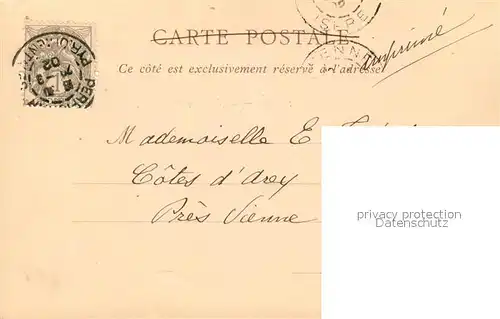 CARTE POSTALE
Ce côté est exclusivement réservé à l'adresse
imprimé
Mademoiselle E.
Côtes d'Arey
Près Vienne
privacy protection
watermark